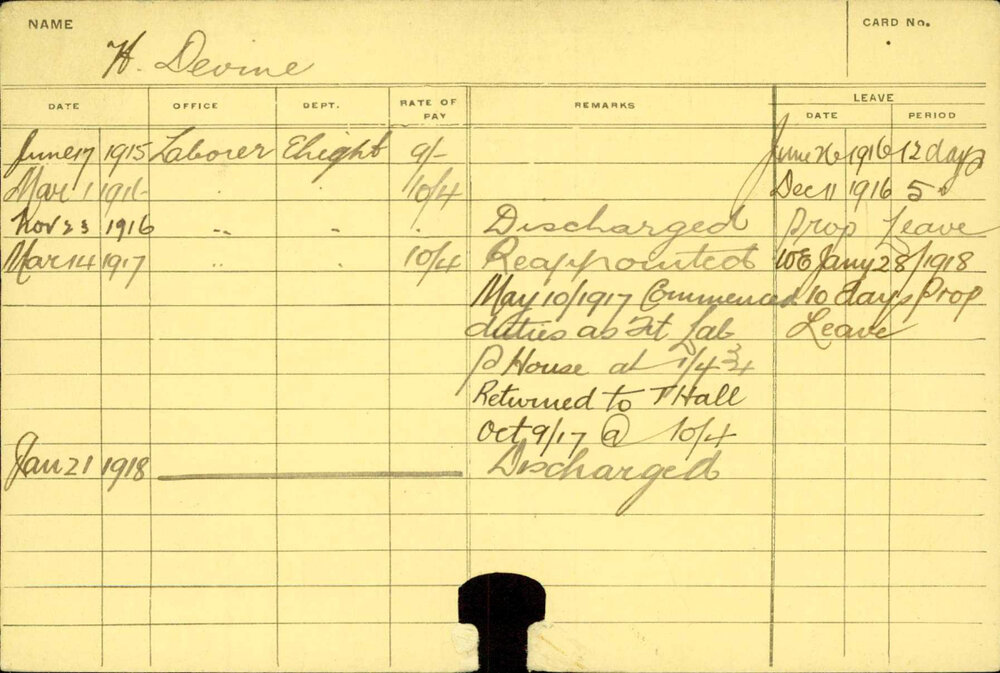 NAME
CARD No.
H. Devine
DATE OFFICE DEPT. RATE OF PAY REMARKS LEAVE
DATE PERIOD
June 17 1915 Laborer Elight 9/- June 26 1916 12 days
Mar 1 1916 " " 10/4 Dec 11 1916 5 "
Nov 23 1916 " " " Discharged Prop Leave
Mar 14 1917 " " 10/4 Reappointed WE Jany 28/1918
May 10/1917 Commenced 10 days Prop
duties as Lab Leave
P House at 1/4 3/4
Returned to T Hall
Oct 9/17 @ 10/4
Jan 21 1918 Discharged